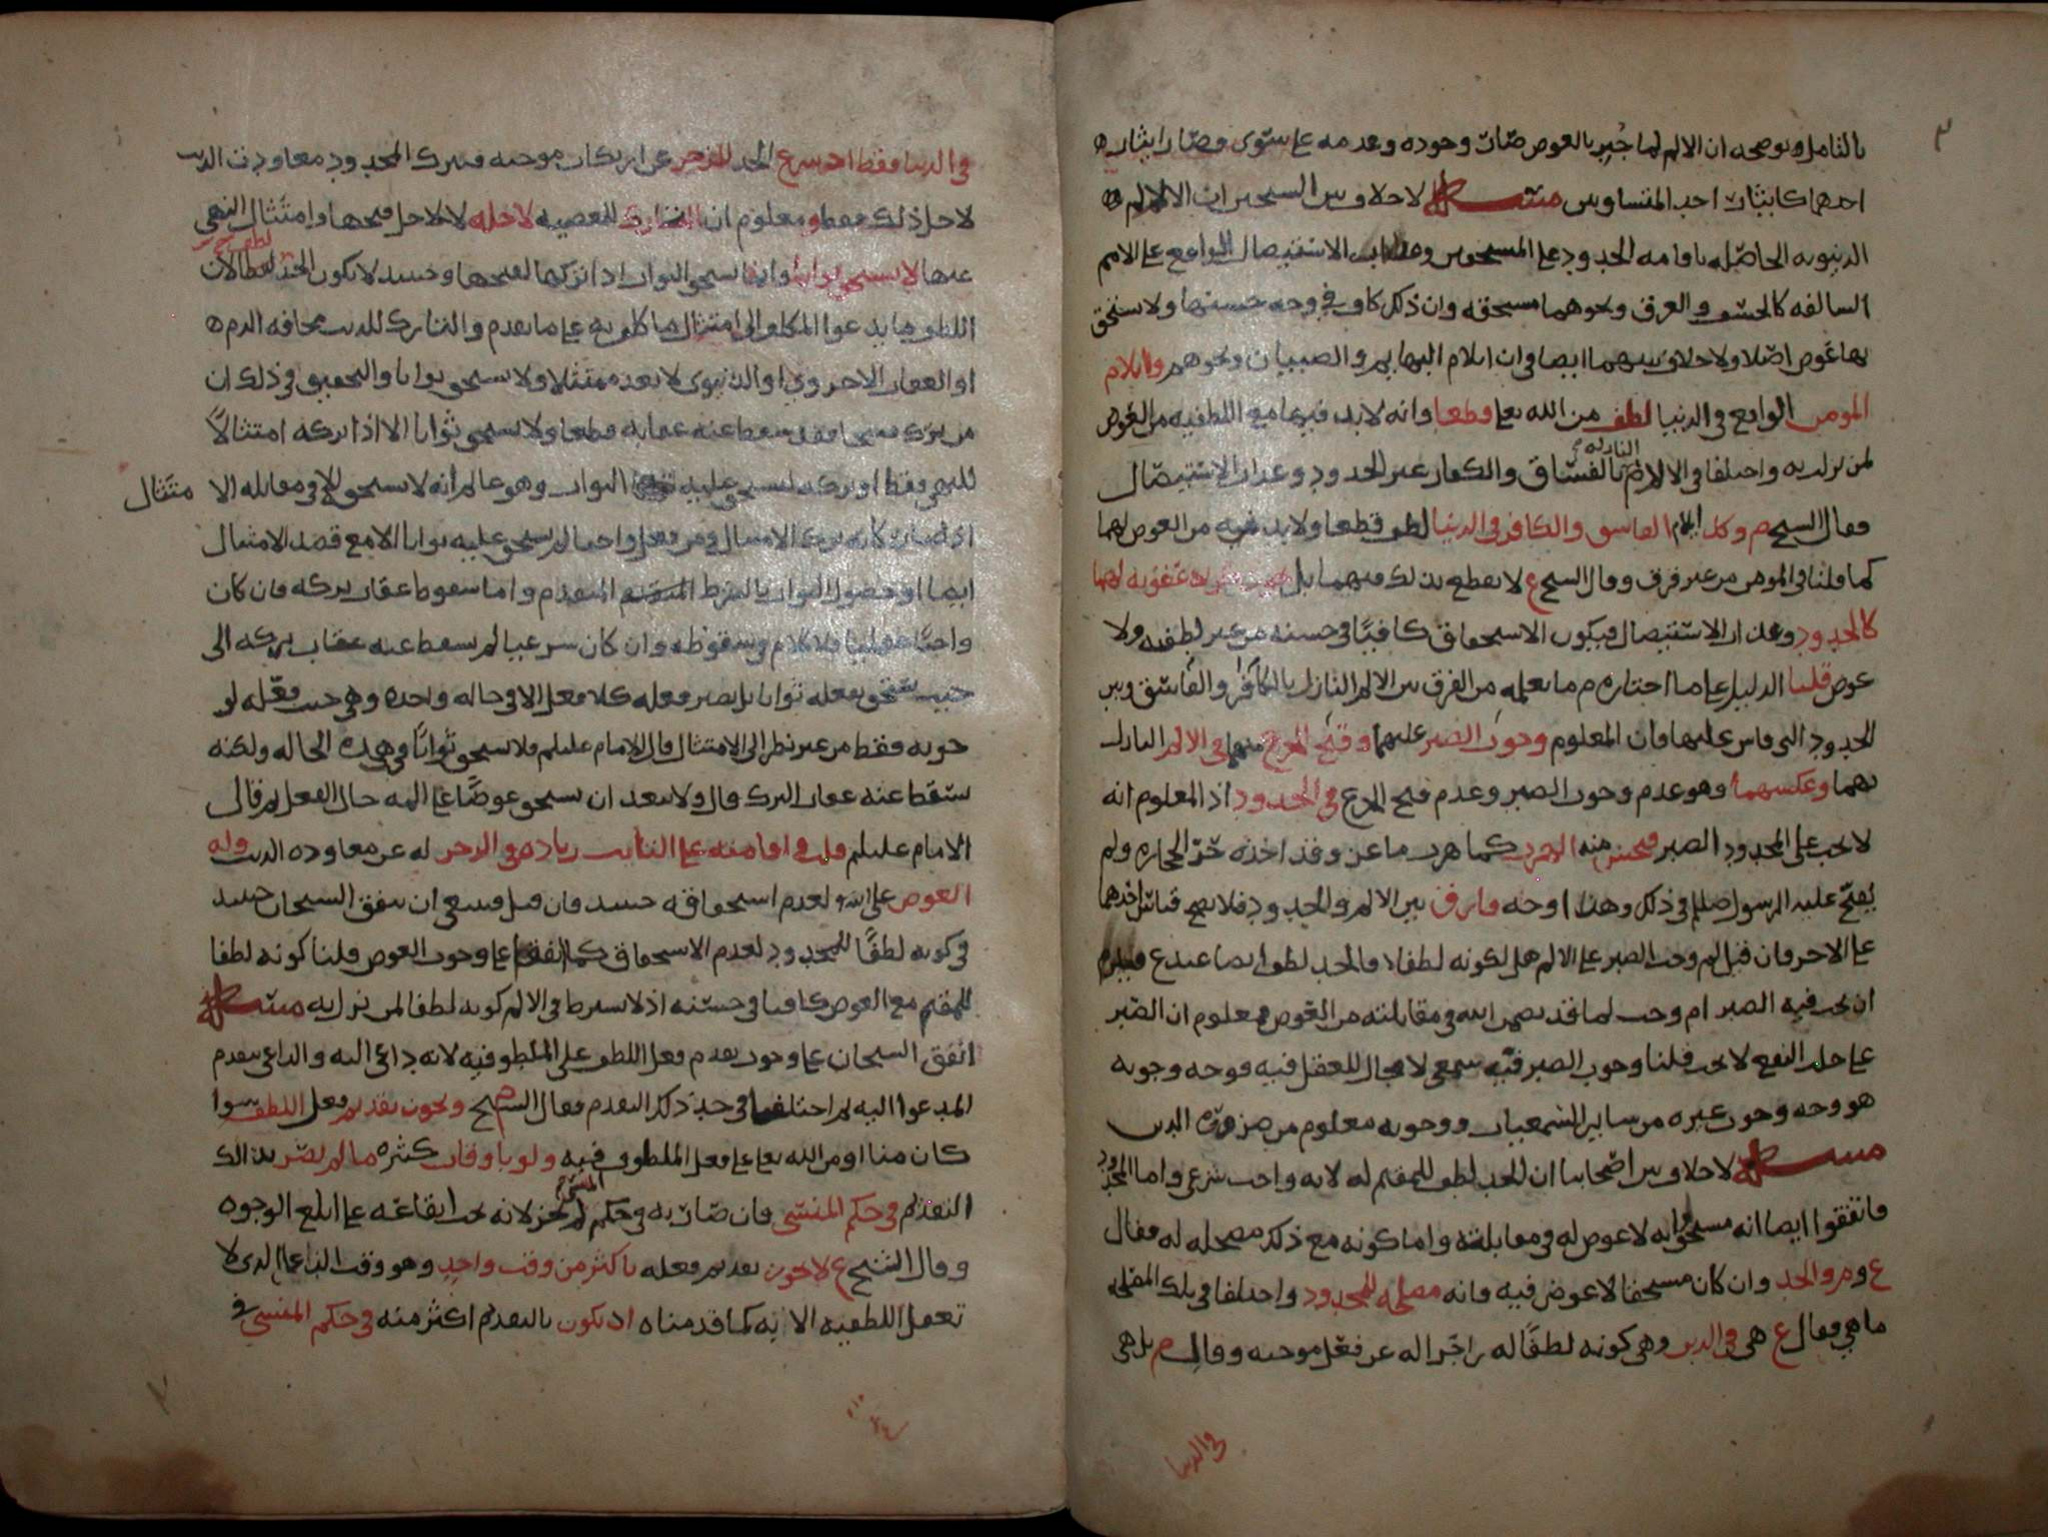 بالتامل ويوضحه ان الالم لما جُبِر بالعوض صَارَ وجوده وعدمه على سَوى وصَار ايثار
احدهما كايثار احد المتساويين مسئلة لا خلاف بين الشيخين ان الالام
الدنيويه الحاصله باقامه الحدود على المستحقين وعذاب الاستيصال الواقع على الامم
السالفه كالخسف والغرق ونحوهما مستحقه وان ذلك كاف في وجه حسنها ولا يستحق
بها عوض اصلا ولا خلاف بينهما ايضا في ان ايلام البهايم والصبيان ونحوهم وايلام
المومن الواقع في الدنيا لطف من الله تعالى قطعا وانه لا بد فيها مع اللطفيه من العوض
لمن نزلت به واختلفا في الالام النازله بالفسَّاق والكفار غير الحدود وعذاب الاستيصال
فقال الشيخ م وكل ايلام الفاسق والكافر في الدنيا لطف قطعا ولا بد فيه من العوض لهما
كما قلنا في المومن من غير فرق وقال الشيخ ع لا نقطع بذلك فيهما بل عقوبه لهما
كالحدود وعذاب الاستيصال فيكون الاستحقاق كافيًا في حسنه من غير لطفيه ولا
عوض قلنا الدليل على ما اختاره م ما نعلمه من الفرق بين الالم النازل بالكافر والفاسق وبين
الحدود التي قاس عليها فان المعلوم وجوب الصبر عليهما وقبح الجزع منهما في الالم النازل
بهما وعكسهما وهو عدم وجوب الصبر وعدم قبح الجزع في الحدود اذ المعلوم انه
لا يجب على المحدود الصبر فيحسن منه الهرب كما هرب ماعز وقد اخذه حَرّ الحجاره ولم
يُقبّح عليه الرسول صلعم ذلك وهذا اوجه فارق بين الالم والحدود فلا يصح قياس احدهما
على الاخر فان قيل لم وجب الصبر على الالم هل لكونه لطفا فالحد لطف ايضا عند ع فيلزم
ان يجب فيه الصبر ام وجب لما قد ضمن الله في مقابلته من العوض فمعلوم ان الصبر
على جلب النفع لا يجب قلنا وجوب الصبر فيه سمعي لا مجال للعقل فيه فوجه وجوبه
هو وجه وجوب غيره من ساير الشرعيات ووجوبه معلوم من ضرورة الدين
مسئلة لا خلاف بين اصحابنا ان الحد لطف للمقيم له لانه واجب شرعي واما المحدود
فاتفقوا ايضا انه مستحق وانه لا عوض له في مقابلته واما كونه مع ذلك مصلحه له فقال
ع وم والحد وان كان مستحقا لا عوض فيه فانه مصلحه للمحدود واختلفا في تلك المصلحه
ما هي فقال ع هي في الدين وهي كونه لطفًا له زاجرًا له عن فعل موجبه وقال م بل هي
في الدنيا
في الدنيا فقط اذ شرع الحد للزجر عن ارتكاب موجبه فيترك المحدود معاودت الذنب
لاجل ذلك فقط ومعلوم ان التارك للمعصيه لاجله لا لاجل قبحها وامتثال النهي
عنها لا يستحق ثوابا وانما يستحق الثواب اذا تركها لقبحها وحينئذ لا يكون الحد لطفا لان
اللطف ما يدعو المكلف الى امتثال ما كلف به على ما تقدم والتارك للذنب مخافه الذم
او العقاب الاخروي او الدنيوي لا يعد ممتثلا ولا يستحق ثوابا والتحقيق في ذلك ان
من ترك قبيحا فقد سقط عنه عقابه قطعا ولا يستحق ثوابا الا اذا تركه امتثالًا
للنهي فقط او تركه ليستحق عليه الثواب وهو عالم انه لا يستحق في مقابله الا متثال
ايضا او حصول الثواب بالشرط المتقدم واما سقوط عقاب تركه فان كان
واجبًا عقليا فلا كلام في سقوطه وان كان شرعيا لم يسقط عنه عقاب تركه الى
حيث يستحق بفعله ثوابا بل يصير فعله كلا فعل الا في حاله واحده وهي حيث فعله لو
جوبه فقط من غير نظر الى الامتثال قال الامام عليلم فلا يستحق ثوابًا في هذه الحاله ولكنه
سَقط عنه عقاب الترك قال ولا يبعد ان يستحق عوضًا على المه حال الفعل ثم قال
الامام عليلم قلت في اقامته على التايب زياده في الزجر له عن معاوده الذنب وله
العوض على الله لعدم استحقاقه حينئذ فان قيل فينبغي ان يتفق الشيخان حينئذ
في كونه لطفًا للمحدود لعدم الاستحقاق كما اتفقا على وجوب العوض قلنا كونه لطفا
للمقيم مع العوض كافيا في حسنه اذ لا يشترط في الالم كونه لطفا لمن نزل به مسئلة
اتفق الشيخان على وجوب تقدم فعل اللطف على الملطوف فيه لانه داعي اليه والداعي يتقدم
المدعوا اليه ثم اختلفا في حد ذلك التقدم فقال الشيخ م ويجوز تقديم فعل اللطف سوا
كان منا او من الله تعالى على فعل الملطوف فيه ولو باوقات كثيره ما لم يصر بذلك
التقديم في حكم المنسَّى فان صَار به في حكم المنسَّى لم يجز لانه يجب ايقاعه على ابلغ الوجوه
وقال الشيخ ع لا يجوز تقديم فعله باكثر من وقت واحد وهو وقت الداعي الذي لا
تعقل اللطفيه الا به كما قدمناه اذ يكون بالتقديم اكثر منه في حكم المنسى في